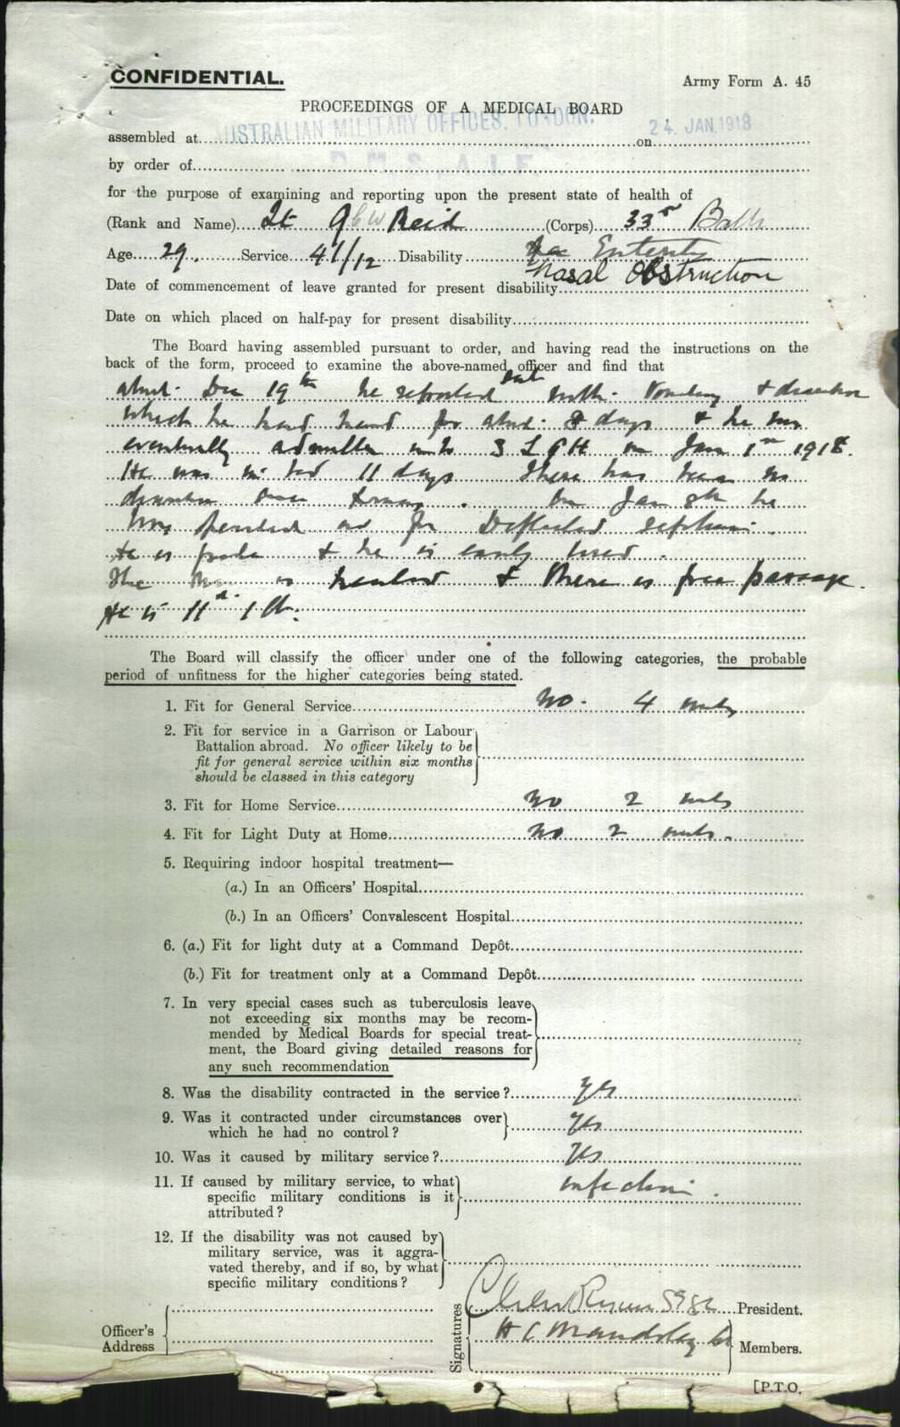 CONFIDENTIAL.
Army Form A. 45
PROCEEDINGS OF A MEDICAL BOARD
AUSTRALIAN MILITARY OFFICES, LONDON.
24 JAN 1918
assembled at on
D.M.S. A.I.F.
by order of
for the purpose of examining and reporting upon the present state of health of
(Rank and Name) Lt Reid (Corps) 33rd Battn
Age 29. Service 4 1/12 Disability
Nasal Obstruction
Date of commencement of leave granted for present disability
Date on which placed on half-pay for present disability
The Board having assembled pursuant to order, and having read the instructions on the
back of the form, proceed to examine the above-named officer and find that
about Dec 19th he reported with
which he had had for about 8 days & he was
eventually admitted into 3 L G H on Jan 1st 1918.
He was in bed 11 days There has been no
On Jan 8th he
was operated on for Deflected septum.
He is & he is easily tired.
The is healed & there is free passage.
He is 11
The Board will classify the officer under one of the following categories, the probable
period of unfitness for the higher categories being stated.
1. Fit for General Service No. 4
2. Fit for service in a Garrison or Labour
Battalion abroad. No officer likely to be
fit for general service within six months
should be classed in this category
3. Fit for Home Service No 2
4. Fit for Light Duty at Home No 2
5. Requiring indoor hospital treatment—
(a.) In an Officers' Hospital
(b.) In an Officers' Convalescent Hospital
6. (a.) Fit for light duty at a Command Depôt
(b.) Fit for treatment only at a Command Depôt
7. In very special cases such as tuberculosis leave
not exceeding six months may be recom-
mended by Medical Boards for special treat-
ment, the Board giving detailed reasons for
any such recommendation
8. Was the disability contracted in the service? Yes
9. Was it contracted under circumstances over
which he had no control? Yes
10. Was it caused by military service? Yes
11. If caused by military service, to what
specific military conditions is it
attributed? infection.
12. If the disability was not caused by
military service, was it aggra-
vated thereby, and if so, by what
specific military conditions?
Officer's
Address
Signatures
President.
Members.
[P.T.O.